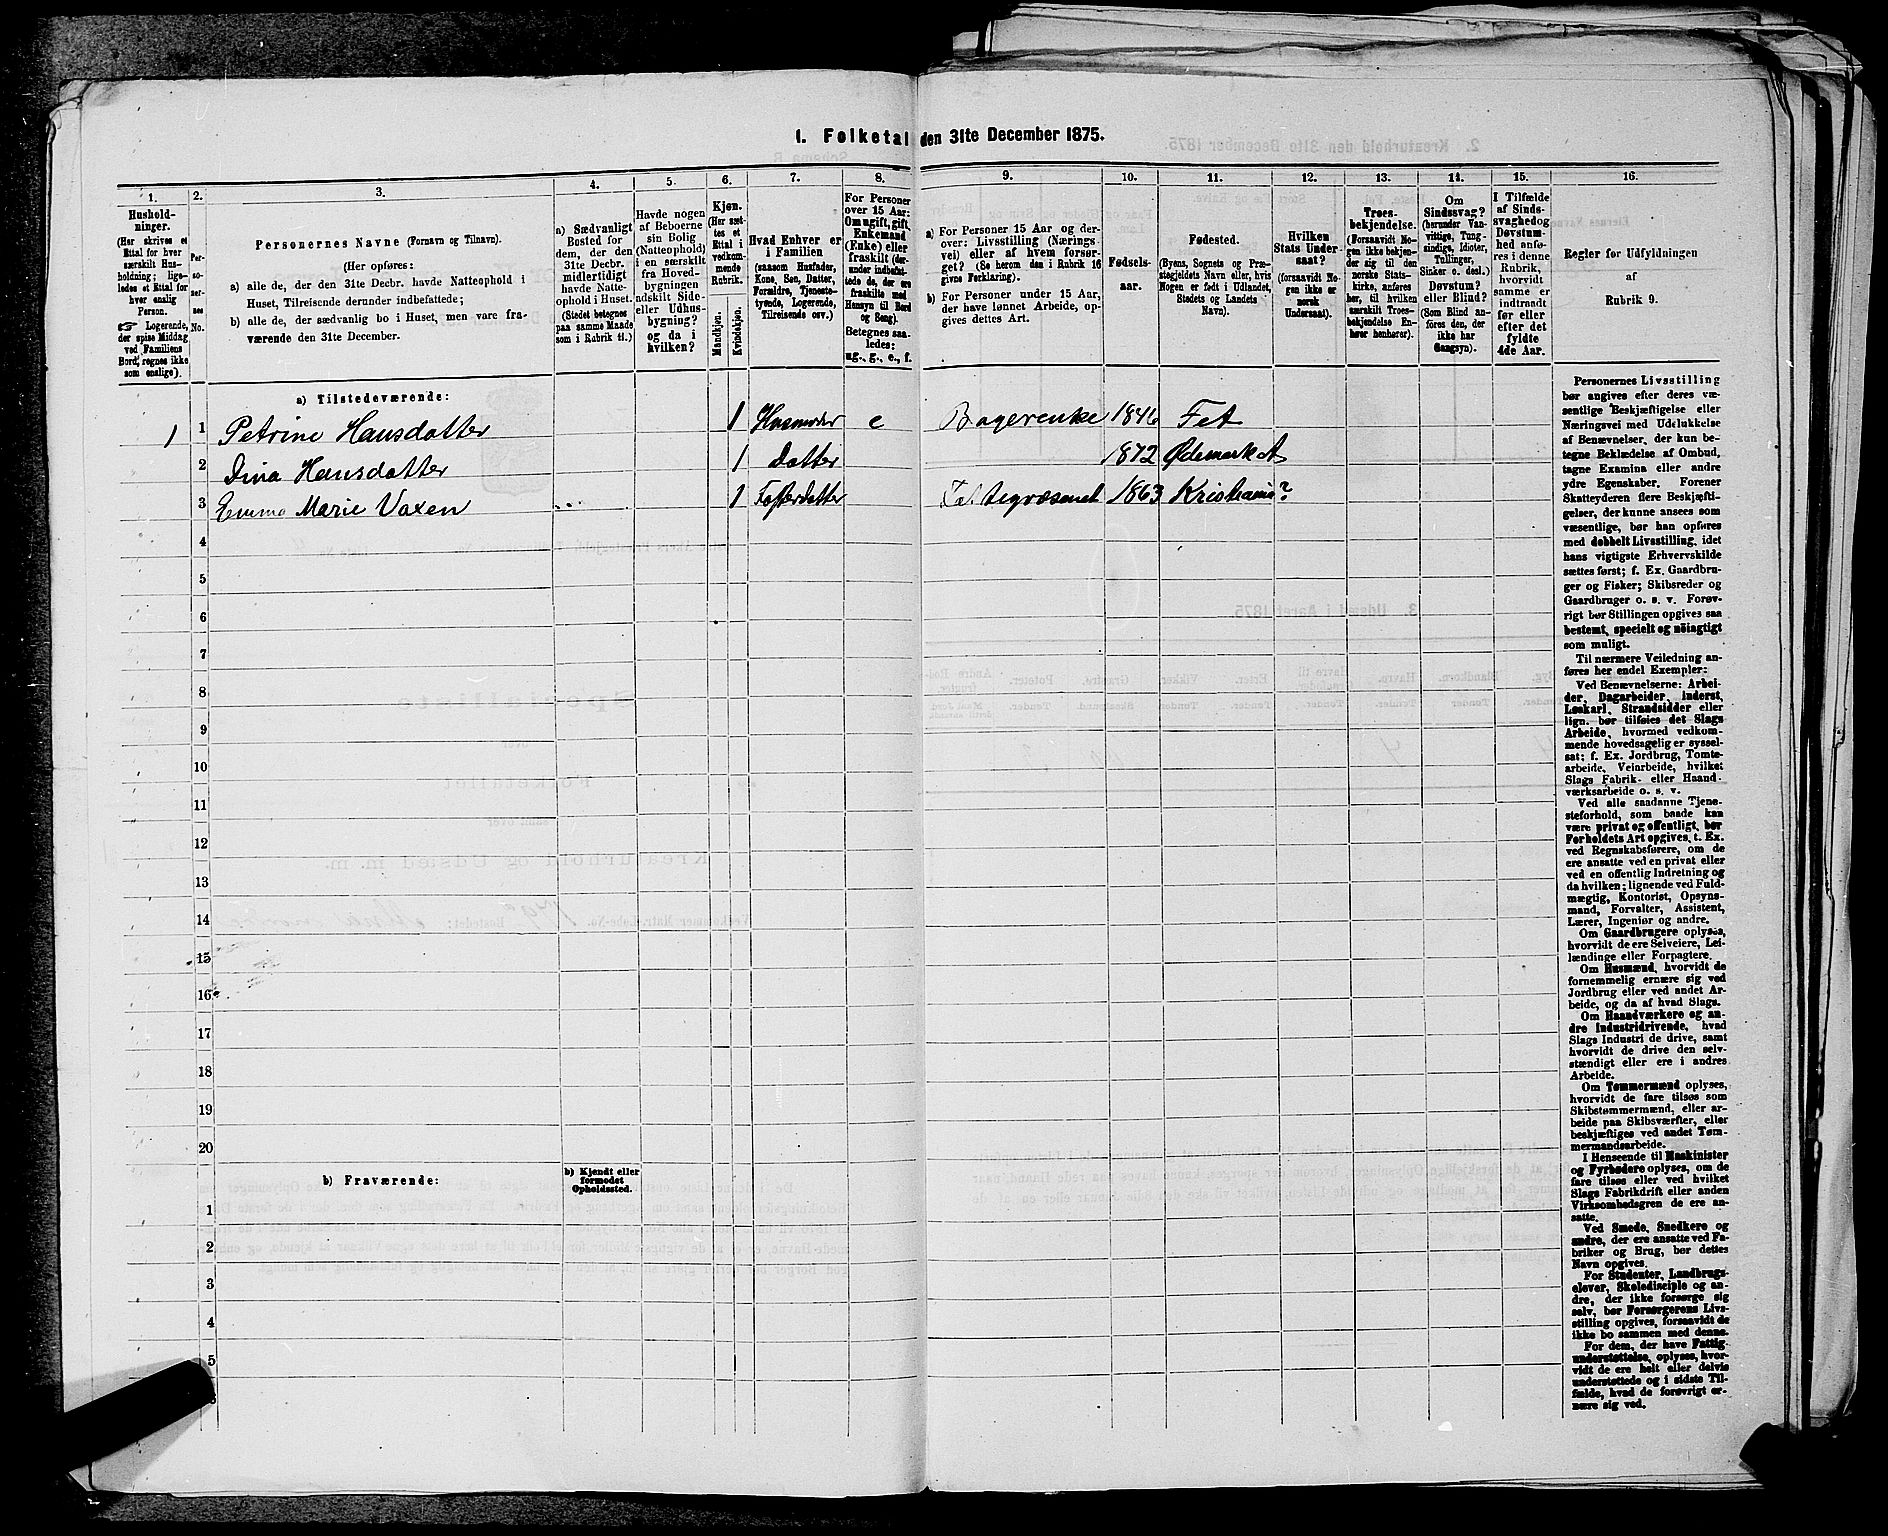 1. Folketal den 31te December 1875.
1. 2. 3. 4. 5. 6. 7. 8. 9. 10. 11. 12. 13. 14. 15. 16.
Hushold-
ninger.
(Her skrives et
Ettal for hver
særskilt Hus-
holdning; lige-
ledes et Ettal for
hver enslig
Person.
☞ Logerende,
der spise Middag
ved Familiens
Bord, regnes ikke
som enslige).
Per-
so-
ner-
nes
No.
Personernes Navne (Fornavn og Tilnavn).
(Her opføres:
a) alle de, der den 31te Decbr. havde Natteophold i
Huset, Tilreisende derunder indbefattede;
b) alle de, der sædvanlig bo i Huset, men vare fra-
værende den 31te December.
a) Sædvanligt
Bosted for
dem, der den
31te Decbr.
midlertidigt
havde Natte-
ophold i Huset.
(Stedet betegnes
paa samme Maade
som i Rubrik 11.)
Havde nogen
af Beboerne
sin Bolig
(Natteophold)
i en særskilt
fra Hoved-
bygningen
adskilt Side-
eller Udhus-
bygning?
og da i
hvilken?
Kjøn.
(Her sæt-
tes et
Ettal i
vedkom-
mende
Rubrik.)
Mandkjøn.
Kvindekjøn.
Hvad Enhver er
i Familien
(saasom Husfader,
Kone, Søn, Datter,
Forældre, Tjeneste-
tyende, Logerende,
Tilreisende osv.)
For Personer
over 15 Aar:
Om ugift, gift,
Enkemand
(Enke) eller
fraskilt (der-
under indbefat-
tede de, der ere
fraskilte med
Hensyn til Bord
og Seng).
Betegnes saa-
ledes:
ug., g., e., f.
a) For Personer 15 Aar og der-
over: Livsstilling (Nærings-
vei) eller af hvem forsør-
get? (Se herom den i Rubrik 16
givne Forklaring).
b) For Personer under 15 Aar,
der have lønnet Arbeide, op-
gives dettes Art.
Fødsels-
aar.
Fødested.
(Byens, Sognets og Præ-
stegjeldets Navn eller, hvis
Nogen er født i Udlandet,
Stedets og Landets
Navn).
Hvilken
Stats Under-
saat?
(forsaavidt No-
gen ikke er
norsk
Undersaat).
Troes-
bekjendelse.
(Forsaavidt No-
gen ikke bekjen-
der sig til den
norske Stats-
kirke, anføres
her, til hvilken
særskilt Troes-
bekjendelse En-
hver henhører).
Om
Sindssvag?
(herunder Van-
vittige, Tung-
sindige, Idioter,
Tullinger,
Sinker o. desl.)
Døvstum?
eller Blind?
(Som Blind an-
føres den, der
ikke har
Gangsyn).
I Tilfælde
af Sinds-
svaghed og
Døvstum-
hed anfø-
res i denne
Rubrik,
hvorvidt
samme er
indtraadt
før eller
efter det
fyldte
4de Aar.
Regler for Udfyldningen
af
Rubrik 9.
a) Tilstedeværende:
1 1 Petrine Hansdatter 1 Husmoder e Bagerenke 1846 Fet
2 Dina Hansdatter 1 Datter 1872 Ødemarket
3 Emma Marie Vaxen 1 Fosterdatter Fattigvæsenet 1863 Kristiania?
4
5
6
7
8
9
10
11
12
13
14
15
16
17
18
19
20
b) Fraværende:
b) Kjendt eller
formodet
Opholdssted.
1
2
3
4
5
Personernes Livsstilling
bør angives efter deres væ-
sentlige Beskjæftigelse eller
Næringsvei med Udelukkelse
af Benævnelser, der kun be-
tegne Beklædelse af Ombud,
tagne Examina eller andre
ydre Egenskaber. Forener
Skatteyderen flere Beskjæfti-
gelser, der kunne ansees som
væsentlige, bør han opføres
med dobbelt Livsstilling, idet
hans vigtigste Erhvervskilde
sættes først; f. Ex. Gaardbru-
ger og Fisker; Skibsreder og
Gaardbruger o. s. v. Forøv-
rigt bør Stillingen opgives saa
bestemt, specielt og nöiagtigt
som muligt.
Til nærmere Veiledning an-
føres her endel Exempler:
Ved Benævnelserne: Arbei-
der, Dagarbeider, Inderst,
Løskarl, Strandsidder eller
lign. bør tilføies det Slags
Arbeide, hvormed vedkom-
mende hovedsagelig er syssel-
sat; f. Ex. Jordbrug, Tomte-
arbeide, Veiarbeide, hvilket
Slags Fabrik- eller Haand-
værksarbeide o. s. v.
Ved alle saadanne Tjene-
steforhold, som baade kan
være privat og offentligt, bør
Forholdets Art opgives, t. Ex.
ved Regnskabsførere, om de
ere ansatte ved en privat eller
ved en offentlig Indretning og
da hvilken; lignende ved Fuld-
mægtig, Kontorist, Opsyns-
mand, Forvalter, Assistent,
Lærer, Ingeniør og andre.
Om Gaardbrugere oplyses,
hvorvidt de ere Selveiere, Lei-
lændinge eller Forpagtere.
Om Husmænd, hvorvidt de
fornemmelig ernære sig ved
Jordbrug eller ved andet Ar-
beide, og da af hvad Slags.
Om Haandværkere og an-
dre Industridrivende, hvad
Slags Industri de drive, samt
hvorvidt de drive den selv-
stændigt eller ere i andres
Arbeide.
Om Tømmermænd oplyses,
hvorvidt de fare tilsøs som
Skibstømmermænd, eller ar-
beide paa Skibsværfter, eller
beskjæftiges ved andet Tøm-
mermandsarbeide.
I Henseende til Maskinister
og Fyrbødere oplyses, om de
fare tilsøs eller ved hvilket
Slags Fabrikdrift eller anden
Virksomhedsgren de ere an-
satte.
Ved Smede, Snedkere og
andre, der ere ansatte ved Fa-
briker og Brug, bør dettes
Navn opgives.
For Studenter, Landbrugs-
elever, Skoledisciple og an-
dre, der ikke forsørge sig
selv, bør Forsørgerens Livs-
stilling opgives, forsaavidt de
ikke bo sammen med denne.
For dem, der have Fattig-
understøttelse, oplyses, hvor-
vidt de ere helt eller delvis
understøttede og i sidste Til-
fælde, hvad de forøvrigt er-
nære sig ved.